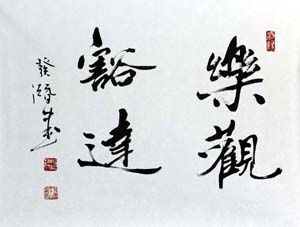 樂觀
豁達